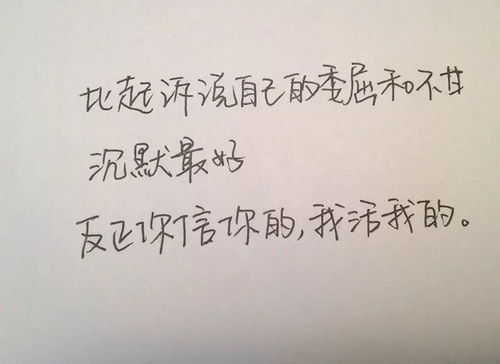 比起诉说自己的委屈和不甘
沉默最好
反正你信你的,我活我的。